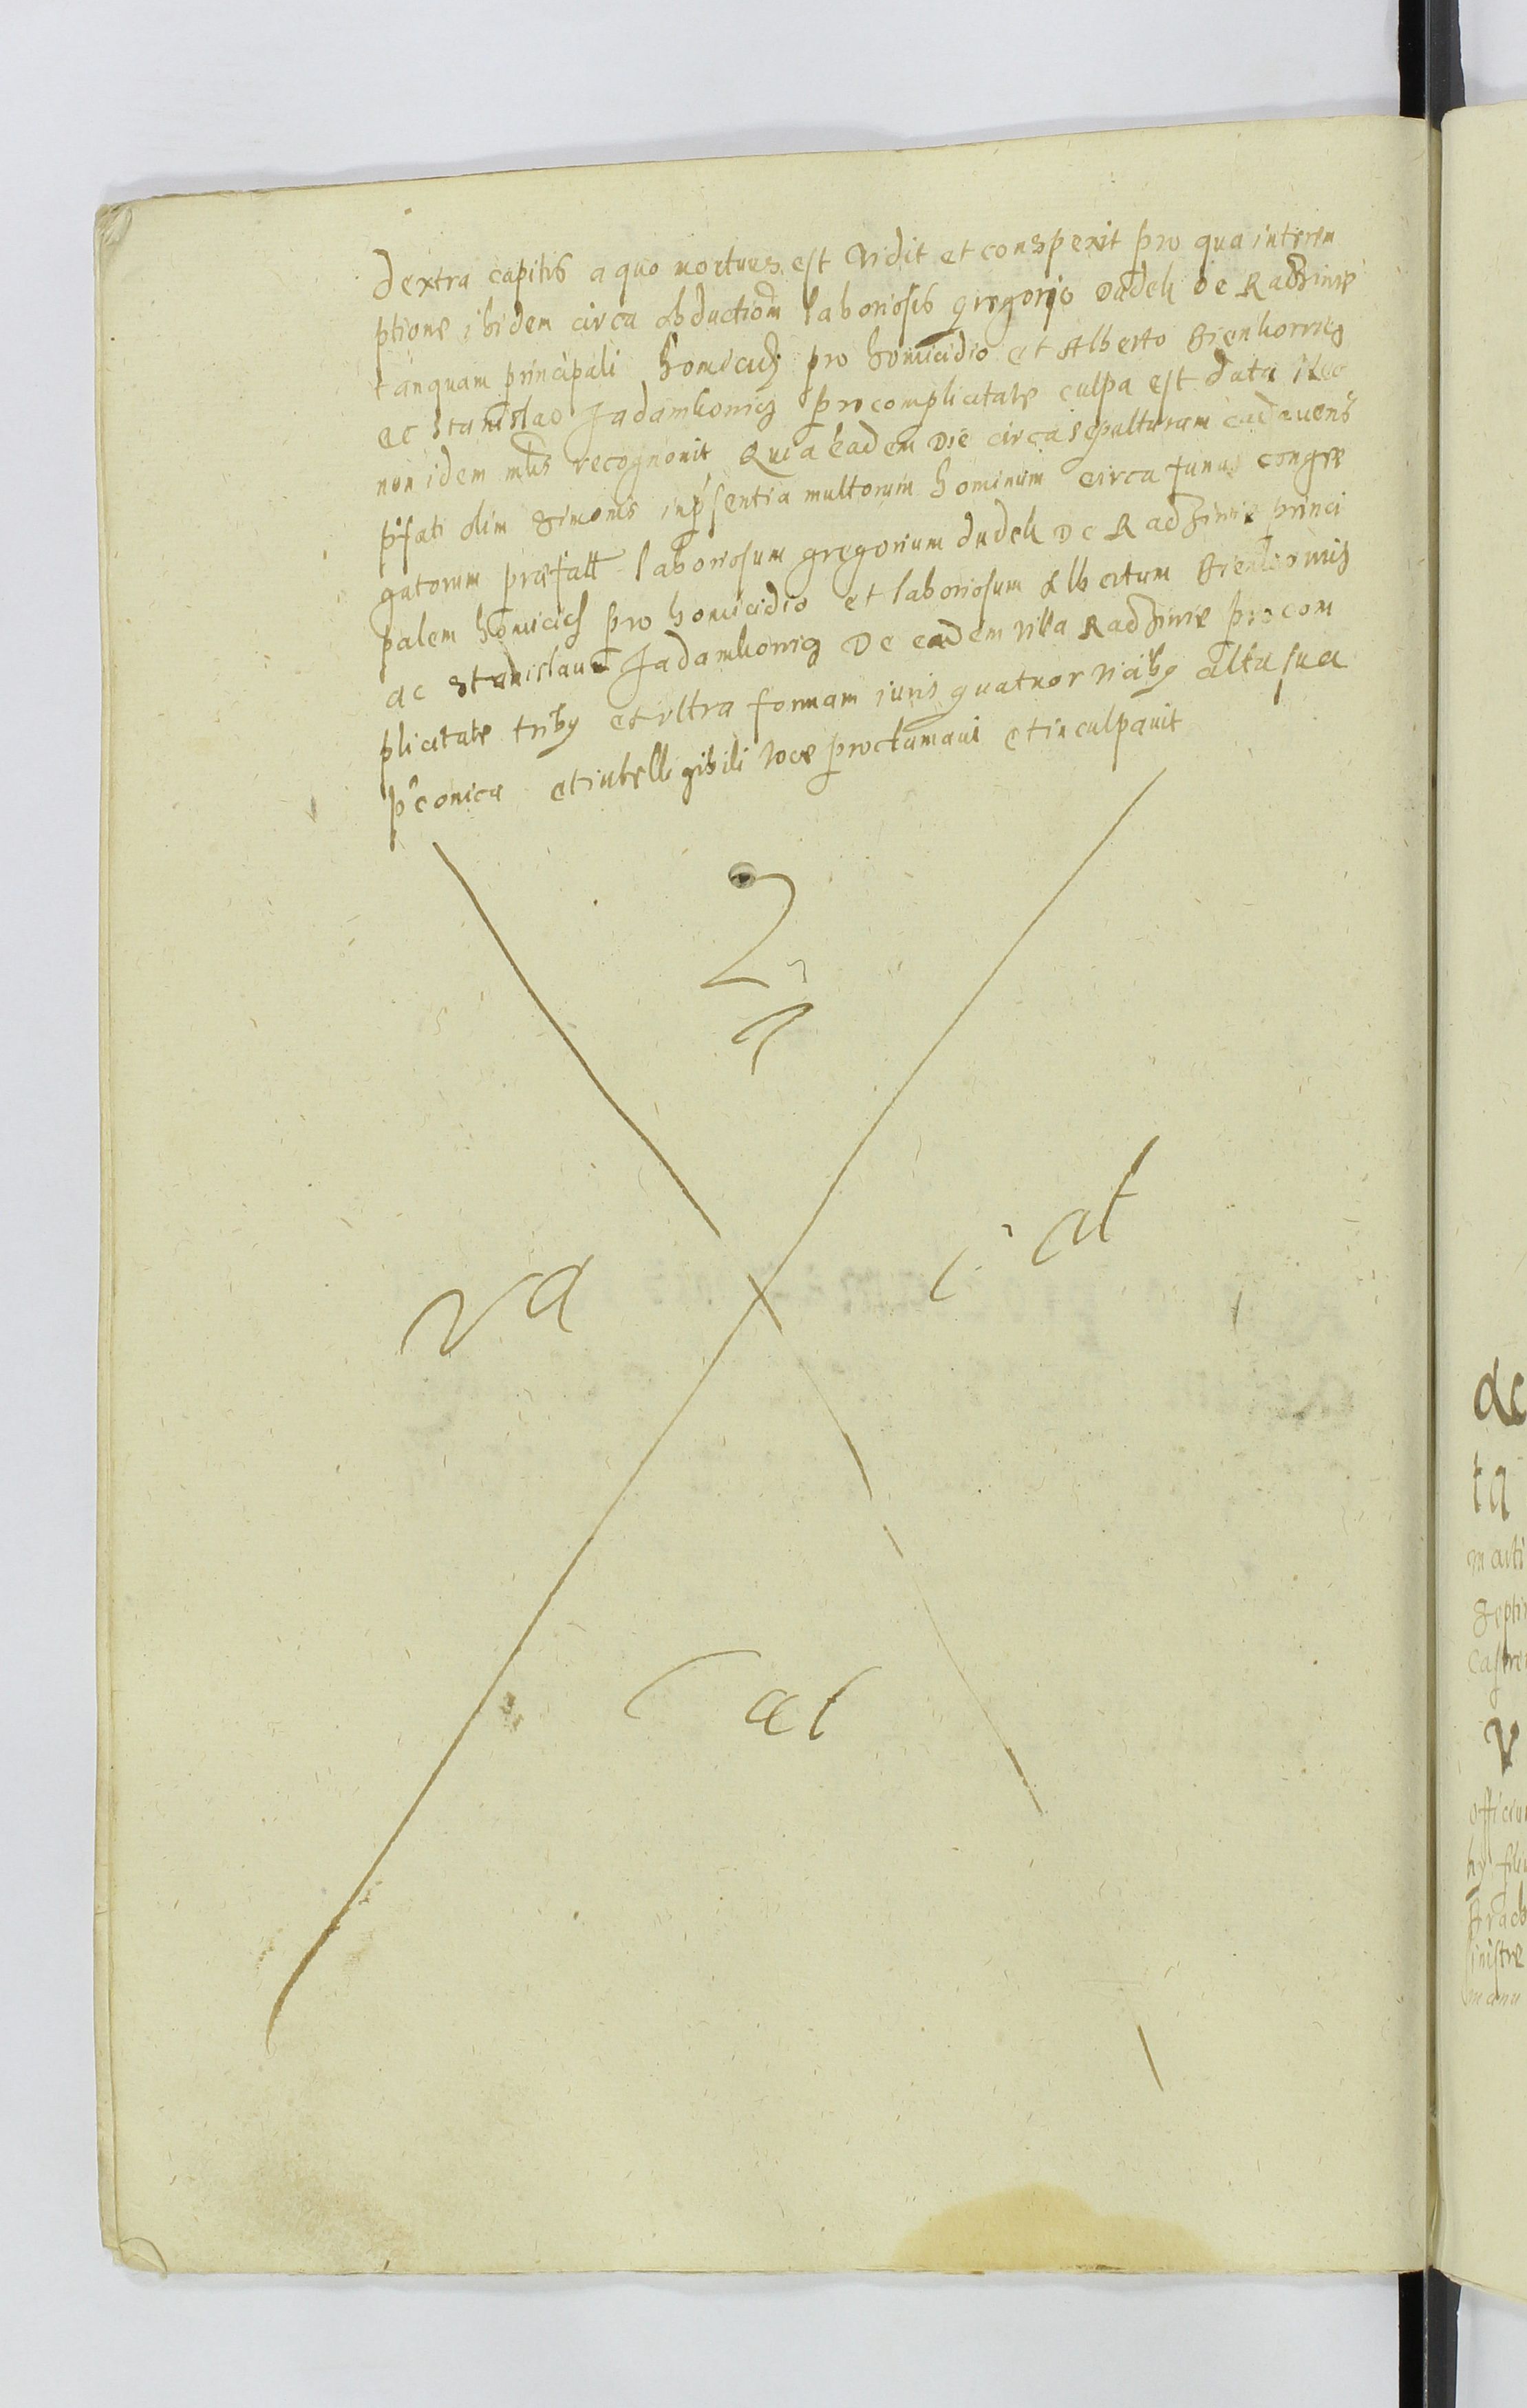 dextra capitis a quo mortuus est vidit et conspexit pro qua interem
ptione ibidem circa obductiom laboriosis gregorio dudek de Radzimie
tanquam principali homicid pro homicidio et Alberto Bienkowicz
ac Stanislao Jadamkowicz pro complicitate culpa est data Nec
non idem mls recognovit Quia eadem Die circa sepulturam cadaveris
pfati olim Simonis in psentia multorum hominum circa funus congre
gatorum præfatt laboriosum gregorium dudek De Radzimie princi
palem homicid pro homicidio et laboriosum Albertum Bienkowicz
ac Stanislaum Jadamkowicz De eadem villa Radzimie pro com
plicitate triby et ultra formam iuris quatuor vicibus alta sua
pconica et intelligibili voce proclamavi et inculpavit
va
cat
ta
marti
septi
castre
V
officiu
sinistre
manu